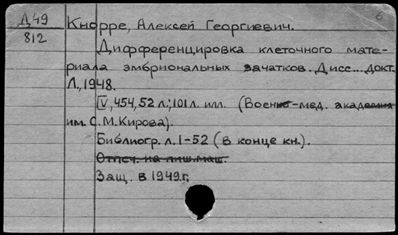 Д49 Кнорре, Алексей Георгиевич. 6
812
Дифференцировка клеточного мате-
риала эмбриональных зачатков. Дисс... докт.
Л., 1948.
IV, 454, 52 л.; 101 л. илл. (Военно-мед. академия
им. С.М. Кирова).
Библиогр. л. 1-52 (в конце кн.).
Отпеч. на пиш. маш.
Защ. в 1949 г.